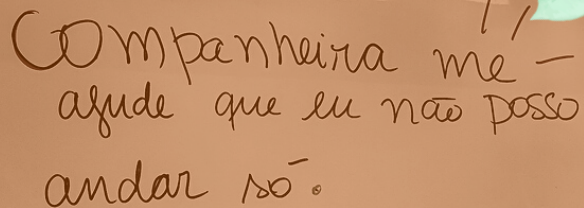 Companheira me -
ajude que eu não posso
andar só.